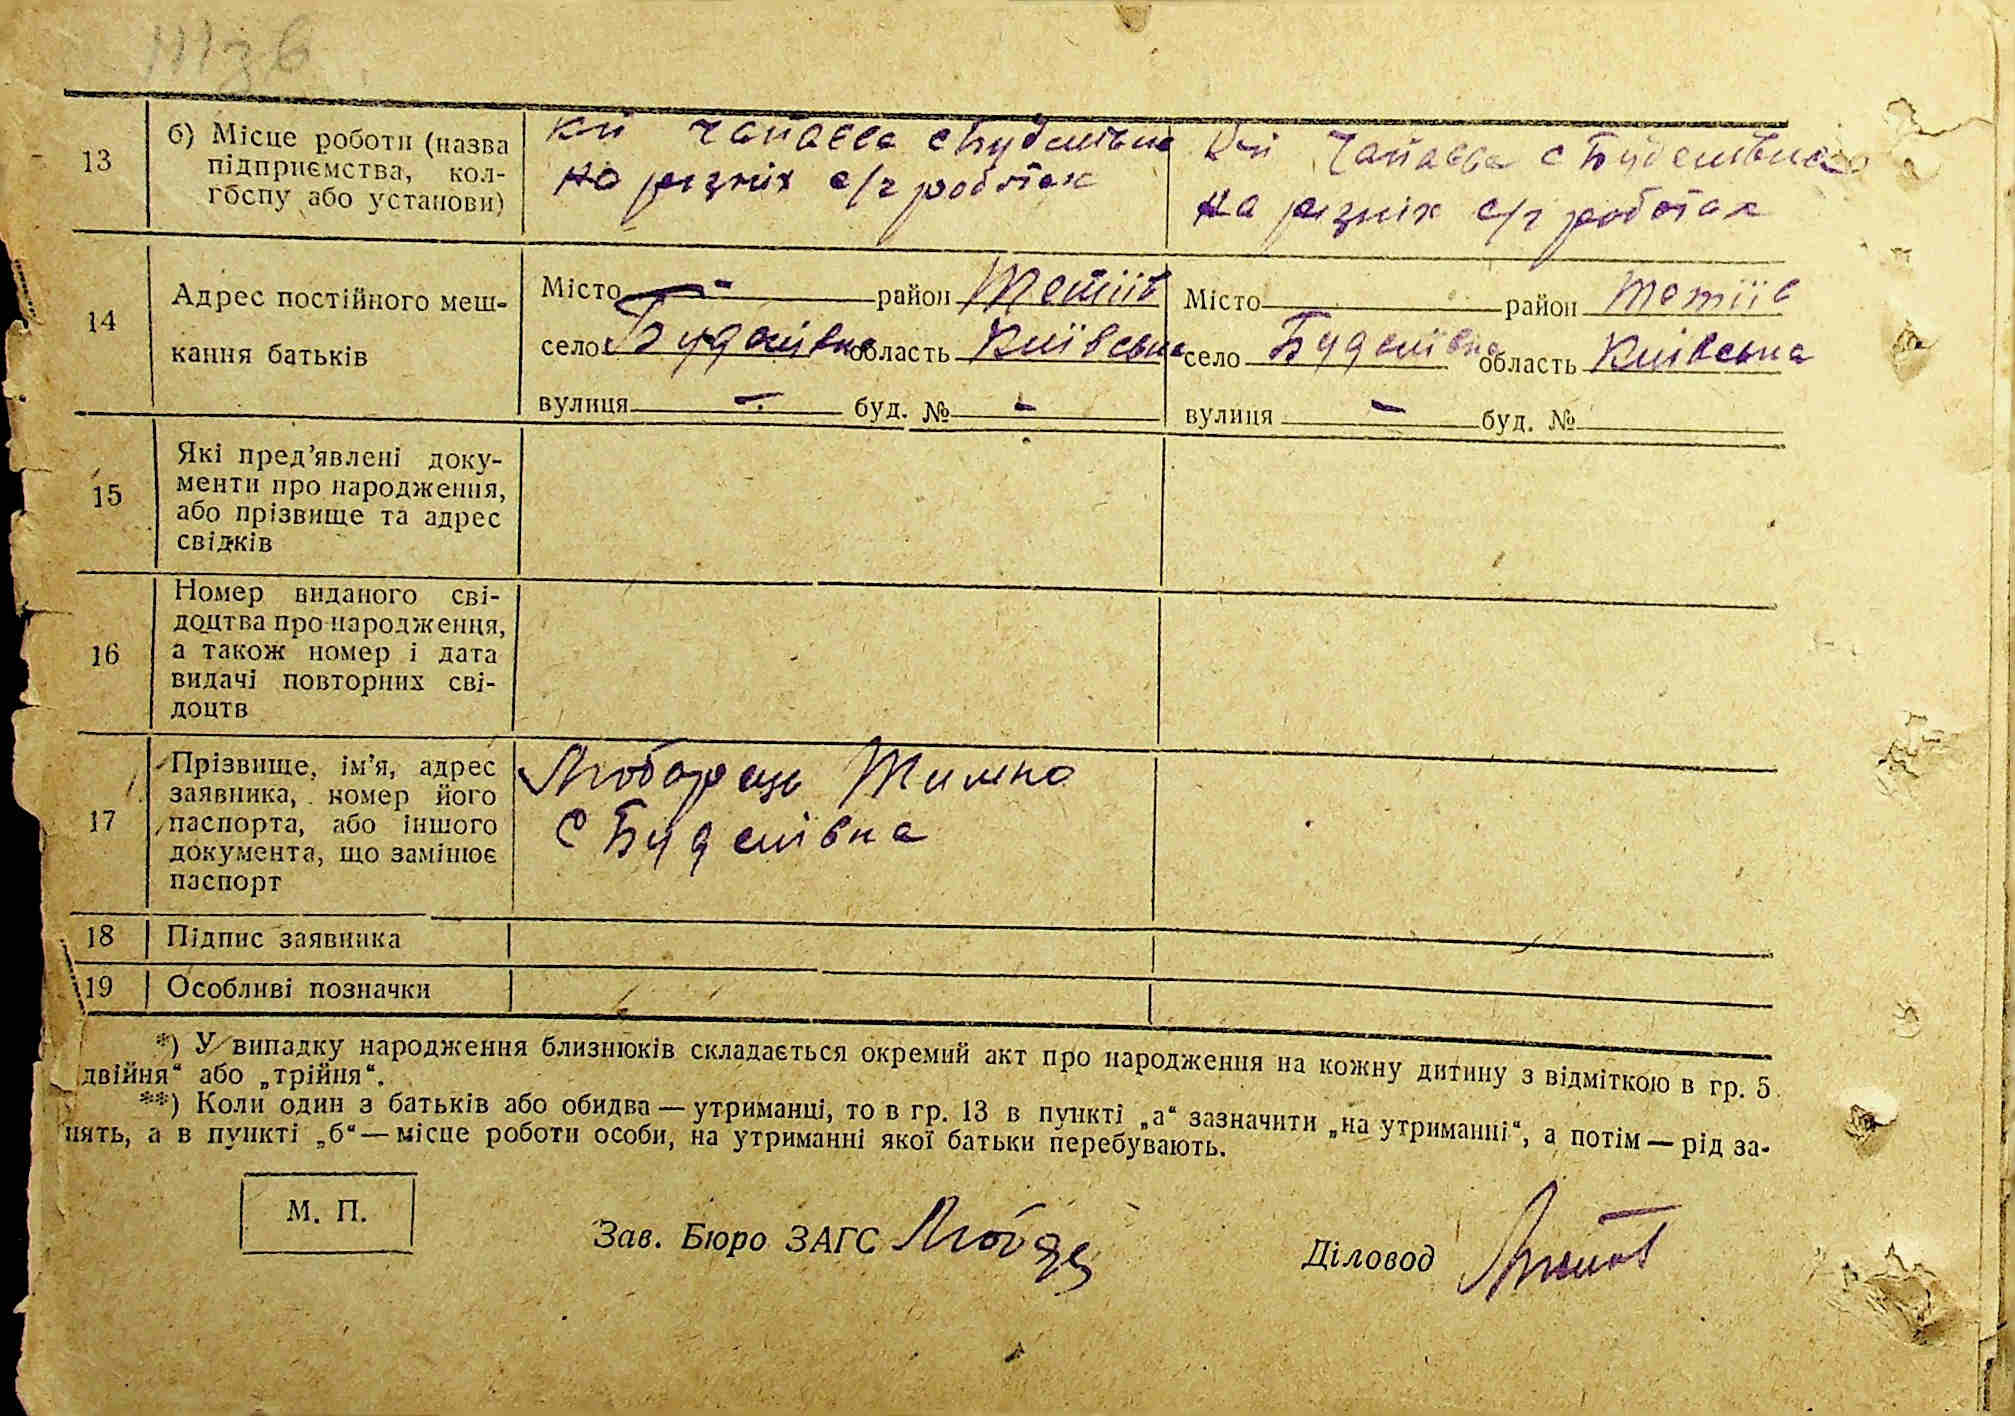 13
б) Місце роботи (назва
підприємства, кол-
госпу або установи)
кп Чапаєва с Буденівна
на різніх с/г роботах
Кп Чапаєва с Буденівна
на різніх с/г роботах
14
Адрес постійного меш-
кання батьків
Місто — район Тетіїв
село Буденівна область Київська
вулиця — буд. № —
Місто район Тетіїв
село Буденівна область Київська
вулиця — буд. №
15
Які пред’явлені доку-
менти про народження,
або прізвище та адрес
свідків
16
Номер виданого сві-
доцтва про народження,
а також номер і дата
видачі повторних сві-
доцтв
17
Прізвище, ім’я, адрес
заявника, номер його
паспорта, або іншого
документа, що замінює
паспорт
Люборець Тимко
с Буденівна
18 Підпис заявника
19 Особливі позначки
*) У випадку народження близнюків складається окремий акт про народження на кожну дитину з відміткою в гр. 5
двійня“ або „трійня“.
**) Коли один з батьків або обидва — утриманці, то в гр. 13 в пункті „а“ зазначити „на утриманні“, а потім — рід за-
нять, а в пункті „б“ — місце роботи особи, на утриманні якої батьки перебувають.
М. П.
Зав. Бюро ЗАГС
Діловод